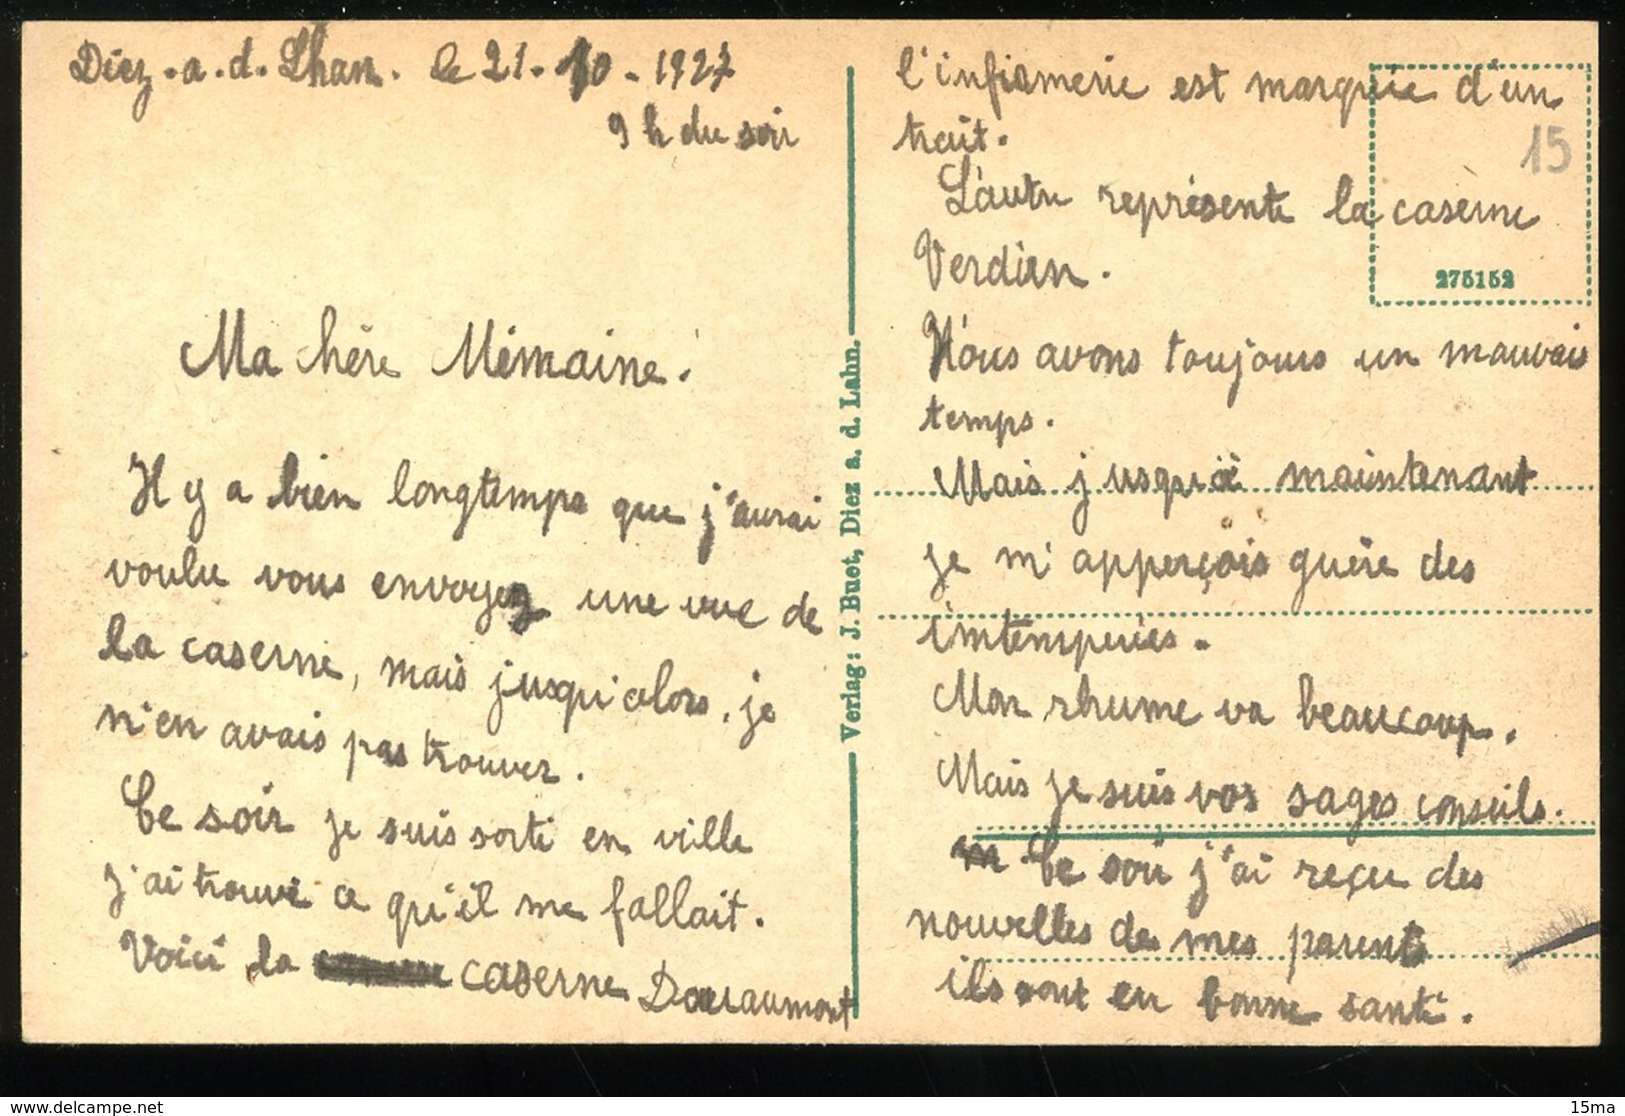 Diez-a.d. Lhan. le 21-10-1927
9 h du soir
Ma hère Mémaine.
Il y a bien longtemps que j'aurai
voulu vous envoyez une vue de
la caserne, mais jusqu'alors, je
n'en avais pas trouver.
Ce soir je suis sorti en ville
j'ai trouvé ce qu'il me fallait.
Voici la caserne Douaumont
Verlag: J. Buet, Diez a. d. Lahn.
l'infirmerie est marquée d'un
trait.
15
L'autre représente la caserne
Verdun.
275152
Nous avons toujours un mauvais
temps.
Mais jusqu'à maintenant
je m'apperçois guère des
intempéries.
Mon rhume va beaucoup.
Mais je suis vos sages conseils.
Ce soir j'ai reçu des
nouvelles de mes parents
ils sont en bonne santé.
www.delcampe.net
15ma